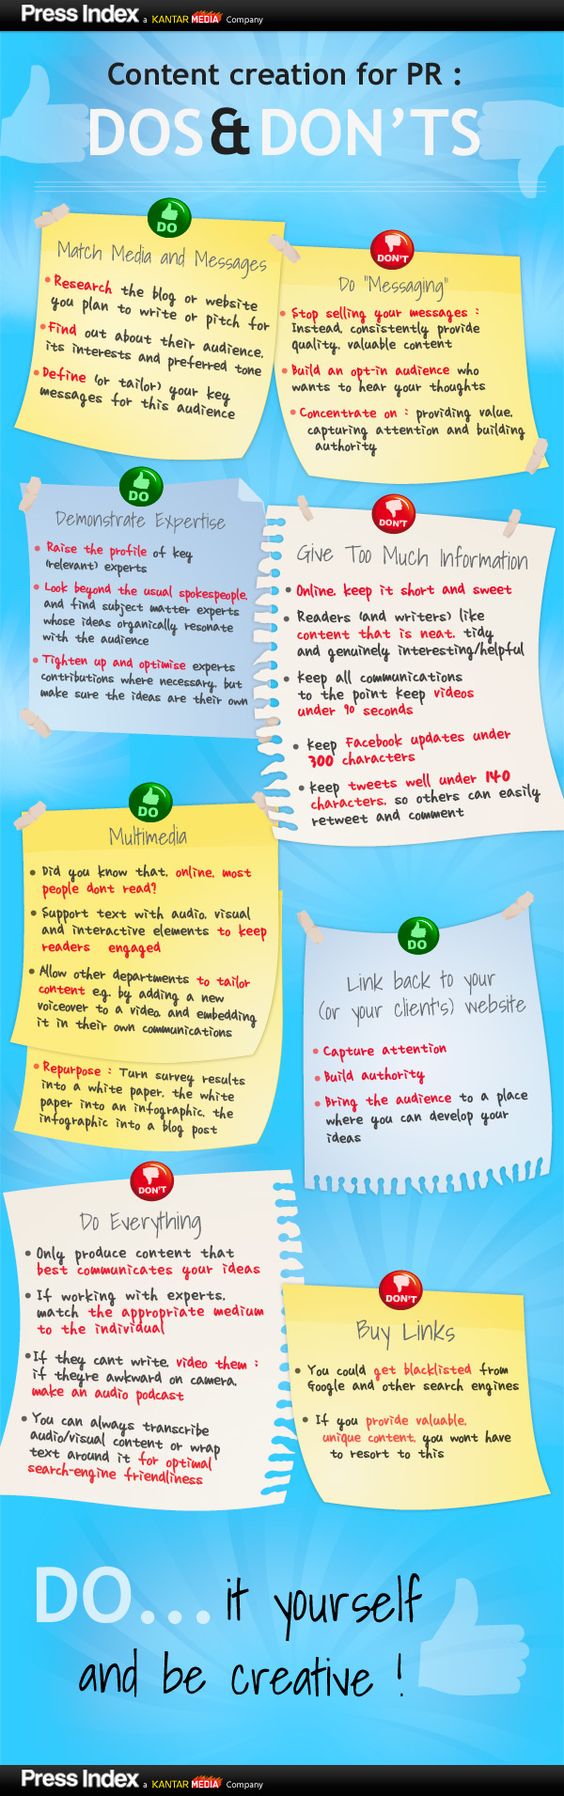 Press Index a KANTAR MEDIA Company
Content creation for PR :
DOS & DON'TS
DO
Match Media and Messages
• Research the blog or website
you plan to write or pitch for
• Find out about their audience,
its interests and preferred tone
• Define (or tailor) your key
messages for this audience
DON'T
Do "Messaging"
• Stop selling your messages :
Instead, consistently provide
quality, valuable content
• Build an opt-in audience who
wants to hear your thoughts
• Concentrate on : providing value,
capturing attention and building
authority
DO
Demonstrate Expertise
• Raise the profile of key
(relevant) experts
• Look beyond the usual spokespeople,
and find subject matter experts
whose ideas organically resonate
with the audience
• Tighten up and optimise experts
contributions where necessary, but
make sure the ideas are their own
DON'T
Give Too Much Information
• Online, keep it short and sweet
• Readers (and writers) like
content that is neat, tidy
and genuinely interesting/helpful
• Keep all communications
to the point keep videos
under 90 seconds
• Keep Facebook updates under
300 characters
• Keep tweets well under 140
characters, so others can easily
retweet and comment
DO
Multimedia
• Did you know that, online, most
people dont read?
• Support text with audio, visual
and interactive elements to keep
readers engaged
• Allow other departments to tailor
content e.g. by adding a new
voiceover to a video, and embedding
it in their own communications
• Repurpose : Turn survey results
into a white paper, the white
paper into an infographic, the
infographic into a blog post
DO
Link back to your
(or your client's) website
• Capture attention
• Build authority
• Bring the audience to a place
where you can develop your
ideas
DON'T
Do Everything
• Only produce content that
best communicates your ideas
• If working with experts,
match the appropriate medium
to the individual
• If they cant write, video them ;
if theyre awkward on camera,
make an audio podcast
• You can always transcribe
audio/visual content or wrap
text around it for optimal
search-engine friendliness
DON'T
Buy Links
• You could get blacklisted from
Google and other search engines
• If you provide valuable,
unique content, you wont have
to resort to this
DO... it yourself
and be creative !
Press Index a KANTAR MEDIA Company